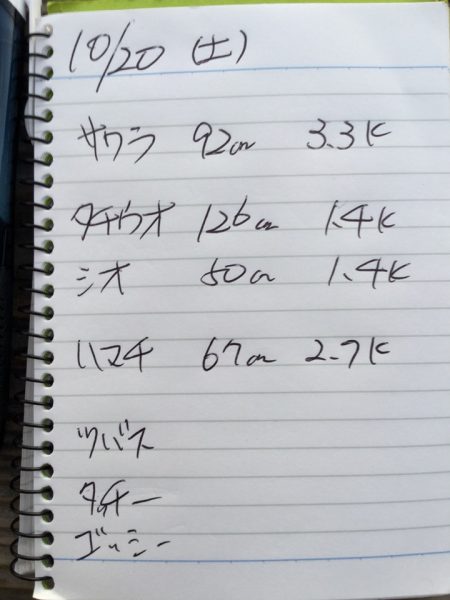 10/20 (土)
サワラ 92cm 3.3K
タチウオ 126cm 1.4K
シオ 50cm 1.4K
ハマチ 67cm 2.7K
ツバス
タチー